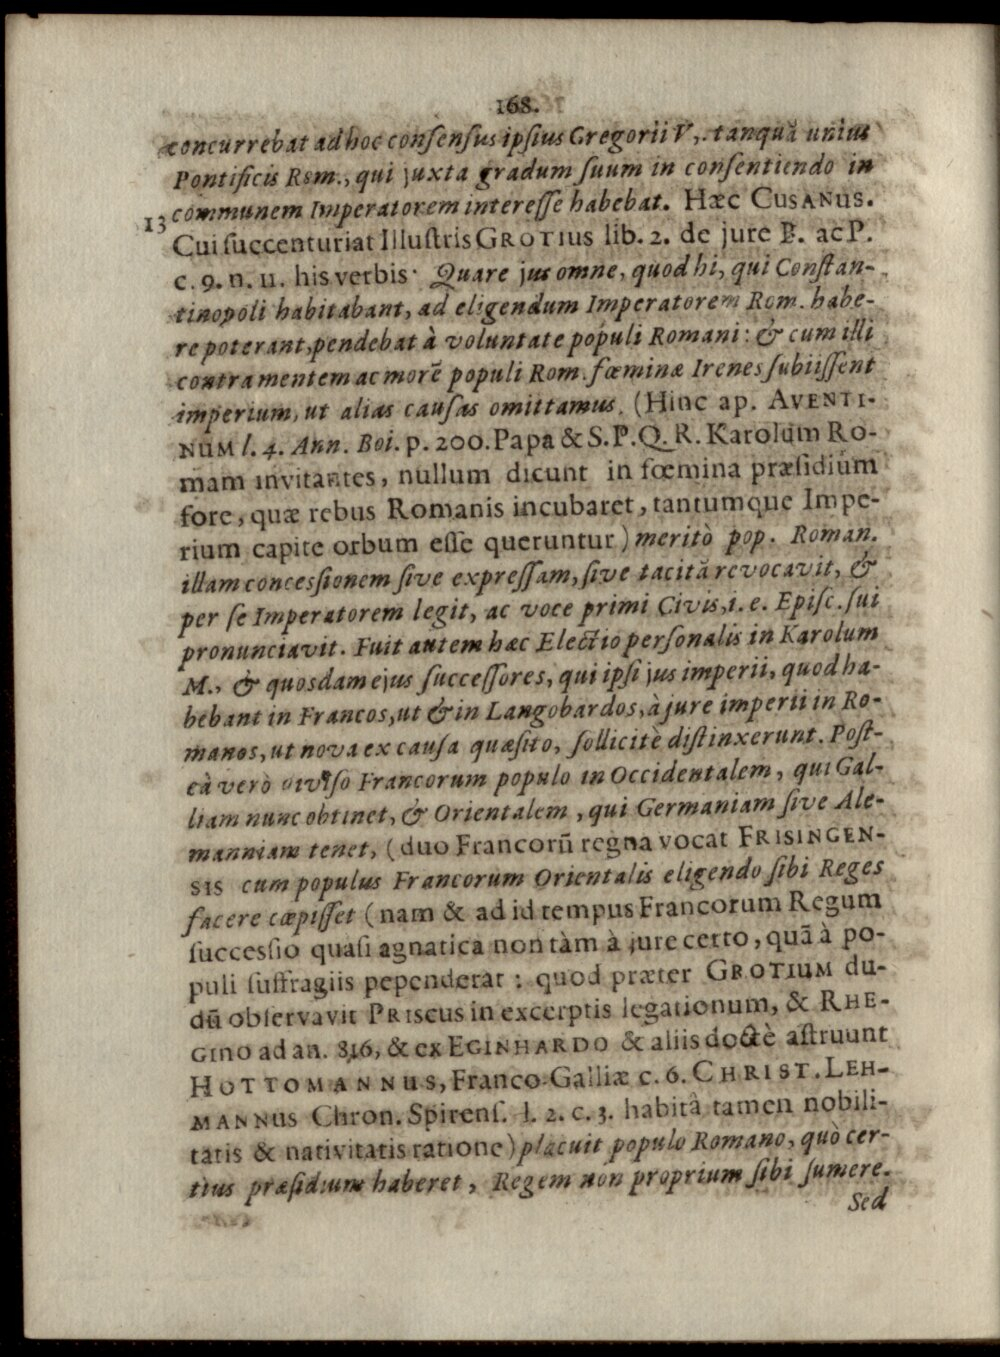 168.
concurrebat ad hoc consensus ipsius Gregorii V,. tanquã unius
Pontificis Rom., qui juxta gradum suum in consentiendo in
communem Imperatorem interesse habebat. Hæc CUSANUS.
13 Cui succenturiat Illustris GROTIUS lib. 2. de jure B. ac P.
c. 9. n. 11. his verbis: Quare jus omne, quod hi, qui Constan-
tinopoli habitabant, ad eligendum Imperatorem Rom. habe-
re poterant, pendebat à voluntate populi Romani: & cum illi
contra mentem ac morẽ populi Rom. fœminæ Irenes subiissent
imperium, ut alias causas omittamus. (Hinc ap. AVENTI-
NUM l. 4. Ann. Boi. p. 200. Papa & S. P. Q. R. Karolum Ro-
mam invitantes, nullum dicunt in fœmina præsidium
fore, quæ rebus Romanis incubaret, tantumque Impe-
rium capite orbum esse queruntur) meritò pop. Roman.
illam concessionem sive expressam, sive tacitã revocavit, &
per se Imperatorem legit, ac voce primi Civis, i. e. Episc. sui
pronunciavit. Fuit autem hæc Electio personalis in Karolum
M., & quosdam ejus successores, qui ipsi jus imperii, quod ha-
bebant in Francos, ut & in Langobardos, à jure imperii in Ro-
manos, ut nova ex causa quæsito, sollicitè distinxerunt. Post-
eà verò diviso Francorum populo in Occidentalem, qui Gal-
liam nunc obtinet, & Orientalem, qui Germaniam sive Ale-
manniam tenet, (duo Francorũ regna vocat FRISINGEN-
SIS cum populus Francorum Orientalis eligendo sibi Reges
facere cœpisset (nam & ad id tempus Francorum Regum
successio quasi agnatica non tàm à jure certo, quã à po-
puli suffragiis pependerat: quod præter GROTIUM du-
dũ observavit PRISCUS in excerptis legationum, & RHE-
GINO ad an. 816, & ex EGINHARDO & aliis doctè astruunt
HOTTOMANNUS, Franco-Galliæ c. 6. CHRIST. LEH-
MANNUS Chron. Spirens. l. 2. c. 3. habitâ tamen nobili-
tatis & nativitatis ratione) placuit populo Romano, quò cer-
tius præsidium haberet, Regem non proprium sibi sumere.
Sed